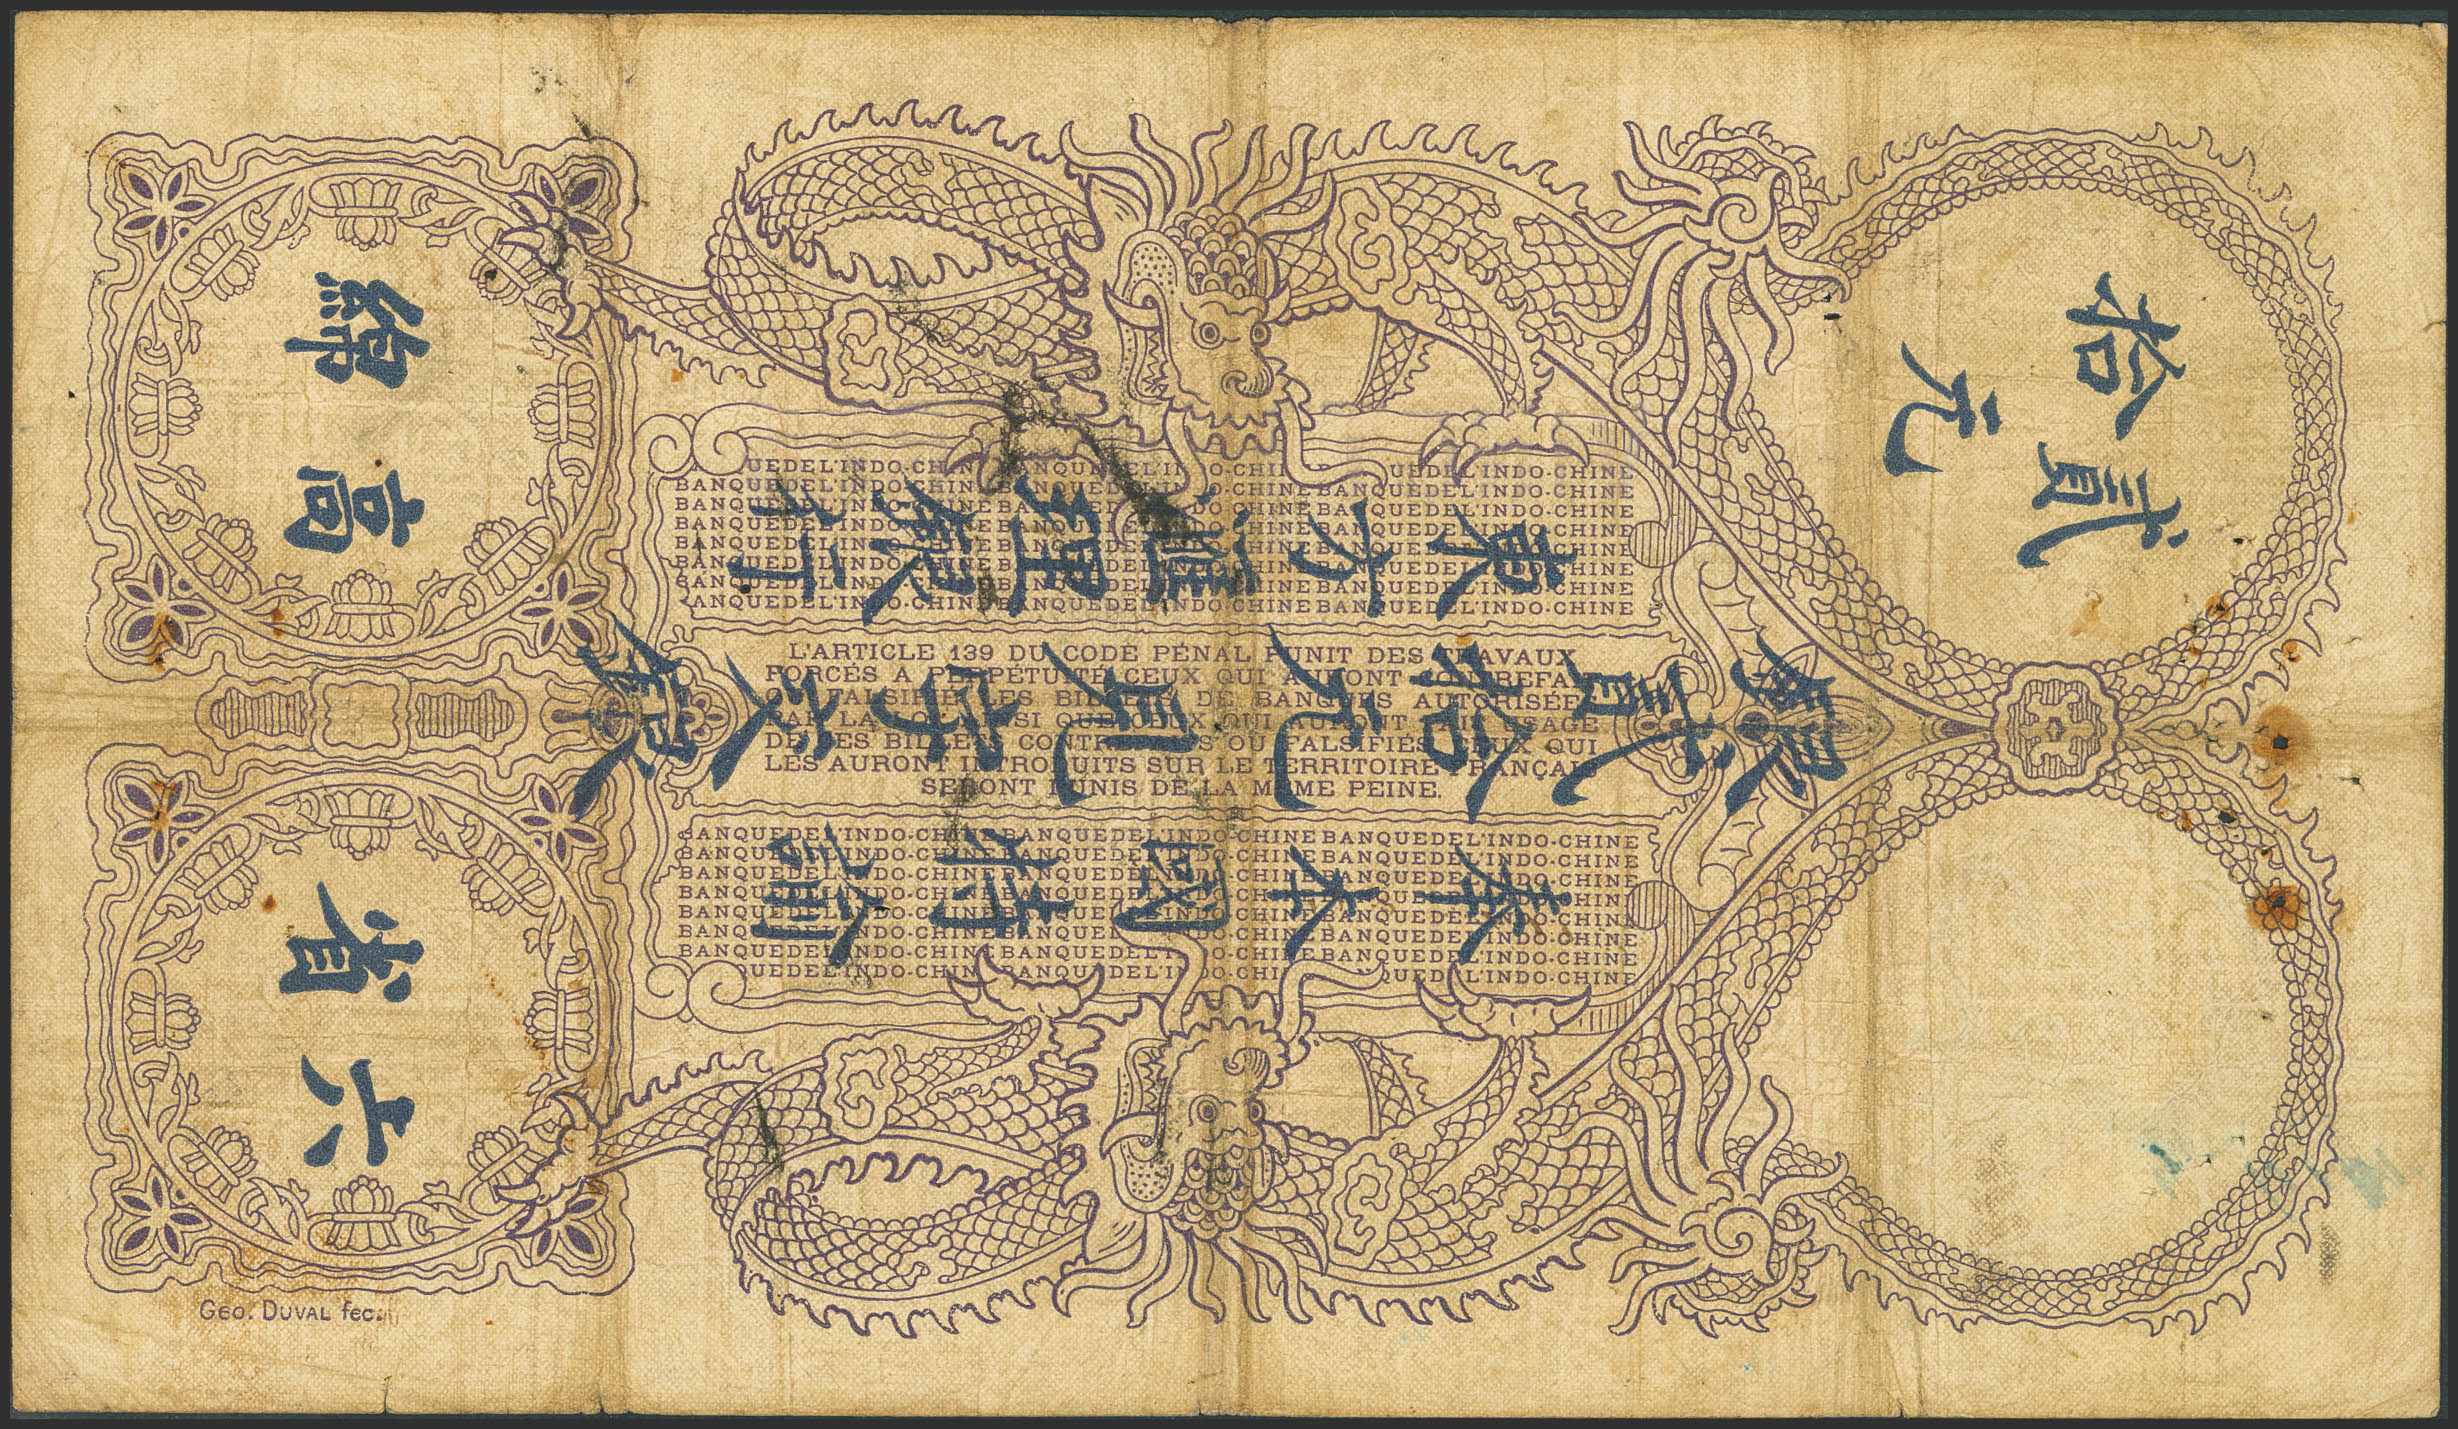 貳拾
元
本大國特
東方滙理
六省
高綿
UEDEL'INDO-CHINE BANQUEDEL'INDO-CHINE BANQUEDEL'INDO-CHINE
BANQUEDEL'INDO-CHINE BANQUEDEL'INDO-CHINE BANQUEDEL'INDO-CHINE
BANQUEDEL'INDO-CHINE BANQUEDEL'INDO-CHINE BANQUEDEL'INDO-CHINE
BANQUEDEL'INDO-CHINE BANQUEDEL'INDO-CHINE BANQUEDEL'INDO-CHINE
BANQUEDEL'INDO-CHINE BANQUEDEL'INDO-CHINE BANQUEDEL'INDO-CHINE
BANQUEDEL'INDO-CHINE BANQUEDEL'INDO-CHINE BANQUEDEL'INDO-CHINE
BANQUEDEL'INDO-CHINE BANQUEDEL'INDO-CHINE BANQUEDEL'INDO-CHINE
BANQUEDEL'INDO-CHINE BANQUEDEL'INDO-CHINE BANQUEDEL'INDO-CHINE
L'ARTICLE 139 DU CODE PÉNAL PUNIT DES TRAVAUX
FORCÉS A PERPÉTUITÉ CEUX QUI AURONT CONTREFAIT
OU FALSIFIÉ LES BILLETS DE BANQUES AUTORISÉES
PAR LA LOI AINSI QUE CEUX QUI AURONT FAIT USAGE
DE CES BILLETS CONTREFAITS OU FALSIFIÉS. CEUX QUI
LES AURONT INTRODUITS SUR LE TERRITOIRE FRANÇAIS
SERONT PUNIS DE LA MÊME PEINE.
BANQUEDEL'INDO-CHINE BANQUEDEL'INDO-CHINE BANQUEDEL'INDO-CHINE
BANQUEDEL'INDO-CHINE BANQUEDEL'INDO-CHINE BANQUEDEL'INDO-CHINE
BANQUEDEL'INDO-CHINE BANQUEDEL'INDO-CHINE BANQUEDEL'INDO-CHINE
BANQUEDEL'INDO-CHINE BANQUEDEL'INDO-CHINE BANQUEDEL'INDO-CHINE
BANQUEDEL'INDO-CHINE BANQUEDEL'INDO-CHINE BANQUEDEL'INDO-CHINE
BANQUEDEL'INDO-CHINE BANQUEDEL'INDO-CHINE BANQUEDEL'INDO-CHINE
BANQUEDEL'INDO-CHINE BANQUEDEL'INDO-CHINE BANQUEDEL'INDO-CHINE
UEDEL'INDO-CHINE BANQUEDEL'INDO-CHINE QUEDEL'INDO-CHINE
GEO. DUVAL fec.